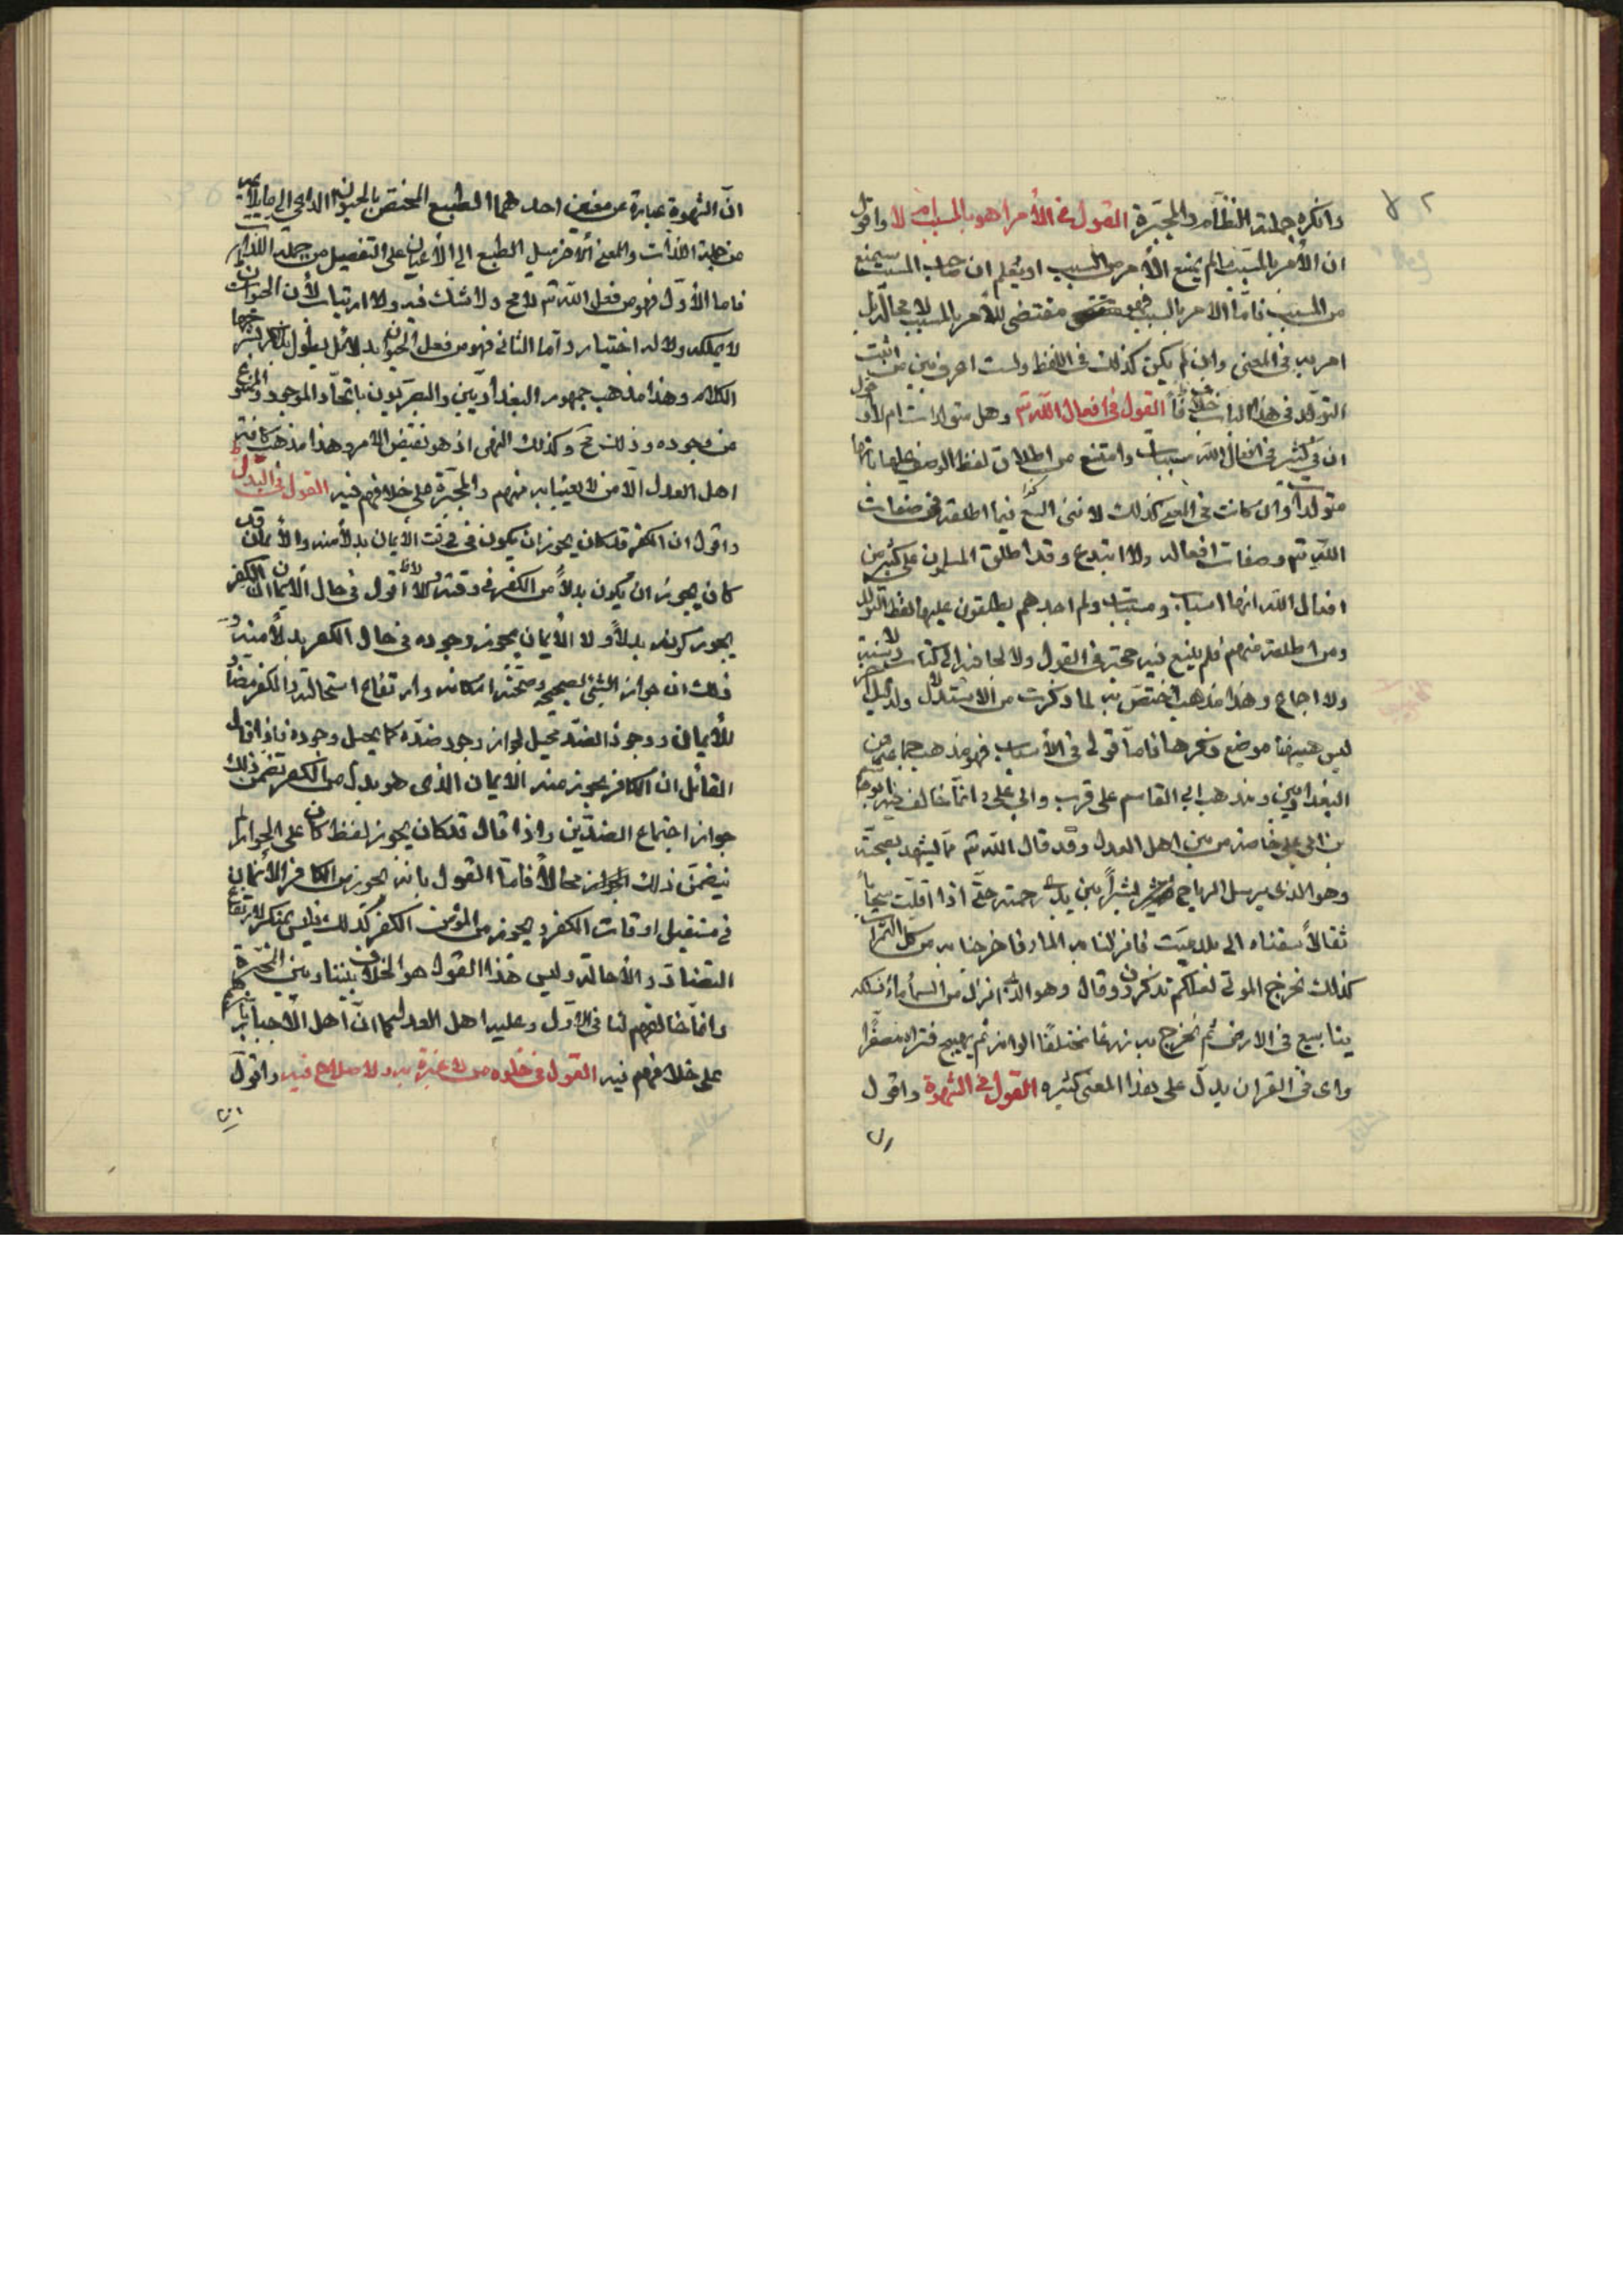 ٨٢
وانكره جملة النظام والمجبرة القول في الأمر اهو بالمسبب ام لا واقول
ان الأمر بالمسبب ما لم يمنع الأمر من السبب او يعلم ان صاحب السبب سيمنع
من السبب فاما الامر بالسبب فهو مقتضى للأمر بالمسبب لا محالة بل
امر به في المعنى وان لم يكن كذلك في اللفظ ولست اعرف بين من اثبت
التولد في هذا الباب خلافاً القول في افعال الله تع وهل متولدات ام لا اقول
ان في كثير من افعال الله مسببات وامتنع من اطلاق لفظ الوصف عليها بانها
متولدات وان كانت في المعنى كذلك لاننى اتبع فيما اطلقه في صفات
الله تع وصفات افعاله ولا ابتدع وقد اطلق المسلمون على كثير من
افعال الله انها اسباب ومسببات ولم اجدهم يطلقون عليها لفظ التولد
ومن اطلقه منهم فلم يتبع فيه حجة في القول ولا لجا فيه الى كتاب ولا سنة
ولا اجماع وهذا مذهب اختص به لما ذكرت من الاستدلال ولدلايل اخر
ليس هيهنا موضع ذكرها فاما قولى في الأسباب فهو مذهب جماعة من
البغداديين ومذهب ابي القاسم على قرب وابي علي وانما خالف فيه ابو هاشم
بن ابي علي خاصة من بين اهل العدل وقد قال الله تع مما يشهد بصحته
وهو الذى يرسل الرياح بشراً بين يدى رحمته حتى اذا اقلت سحاباً
ثقالاً سقناه الى بلد ميت فانزلنا به الماء فاخرجنا به من كل الثمرات
كذلك نخرج الموتى لعلكم تذكرون وقال وهو الذى انزل من السماء ماء فسلكه
ينابيع في الارض ثم يخرج به زرعا مختلفًا الوانه ثم يهيج فتراه مصفرًا
واى في القران يدل على هذا المعنى كثيره القول في الشهوة واقول
ان الشهوة عبارة عن معنيين احدهما الطبع المختص بالحيوان الداعى الى ما يلايمه
من جملة اللذات والمعنى الاخر ميل الطبع الى الأعيان على التفصيل من جملة اللذات
فاما الأول فهو من فعل الله تع لا مح ولا شك فيه ولا ارتياب لأن الحيوان
لا يملكه ولا له اختيار واما الثاني فهو من فعل الحيوان بدلائل يطول بذكرها شرحها
الكلام وهذا مذهب جمهور البغداديين والبصريون باتحاد الموجود والمنع
من وجوده وذلك مح وكذلك النهى اذ هو نقيض الامر وهذا مذهب كافة
اهل العدل الا من لا يعبا به منهم والمجبرة على خلافهم فيه القول في البدل
واقول ان الكفر قد كان يجوز ان يكون في وقت الأيمان بدلاً منه والأيمان قد
كان يجوز ان يكون بدلاً من الكفر في وقته ولا اقول في حال الأيمان ان الكفر
يجوز كونه بدلاً ولا الأيمان يجوز وجوده في حال الكفر بدلاً منه و
ذلك ان جواز الشئ تصحيحه وصحته امكانه وارتفاع استحالته والكفر مضاد
للأيمان ووجود الضد محيل لجواز وجود ضده كما يحيل وجوده فاذا قال
القائل ان الكافر يجوز منه الايمان الذى هو بدل من الكفر تضمن ذلك
جواز اجتماع الضدين واذا قال قد كان يجوز لفظ كان على الجواز لم
يتضمن ذلك محالاً فاما القول بانه يجوز من الكافر الأيمان
في مستقبل اوقات الكفر ويجوز من المؤمن الكفر كذلك فليس بمنكر لارتفاع
التضاد والأحالة وليس هذا القول هو الخلاف بيننا وبين المجبرة
وانما خلافهم لنا في الاول وعليه اهل العدل كما ان اهل الأجبار باسرهم
على خلافهم فيه القول في خلق من لا عبرة به ولا صلاح فيه واقول